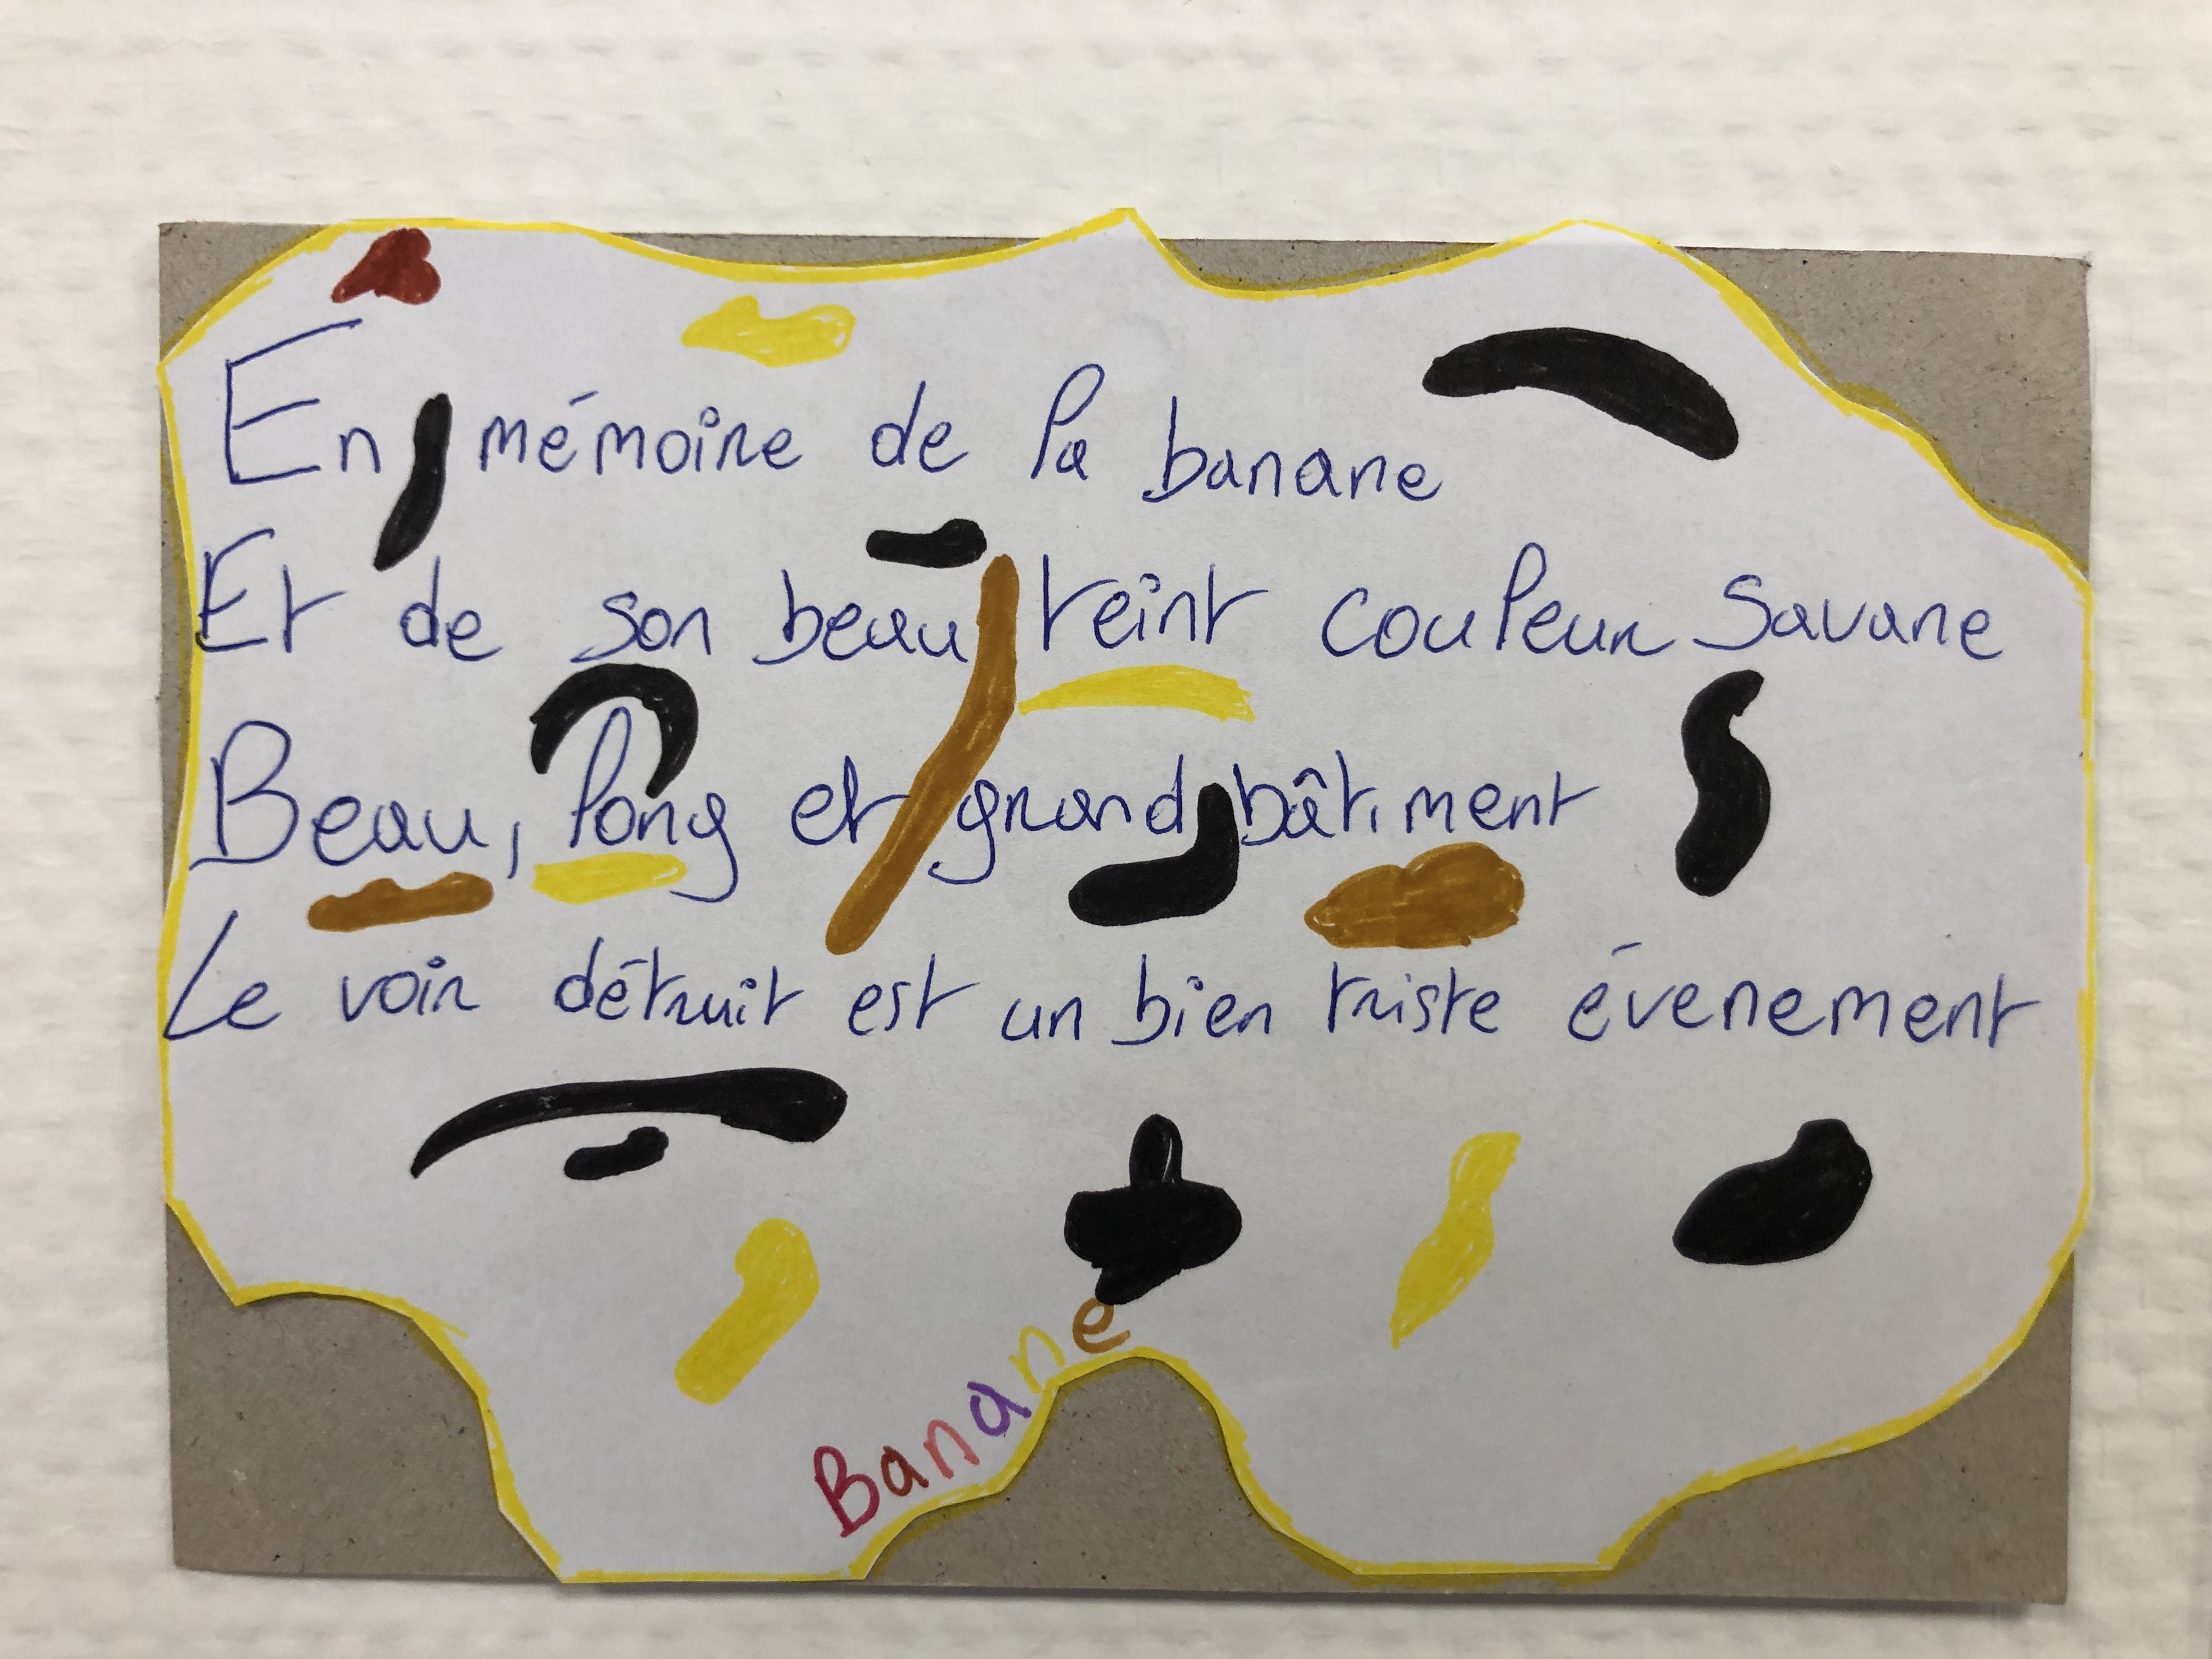 En mémoire de la banane
Et de son beau teint couleur savane
Beau, long et grand bâtiment
Le voir détruit est un bien triste évenement
Banane